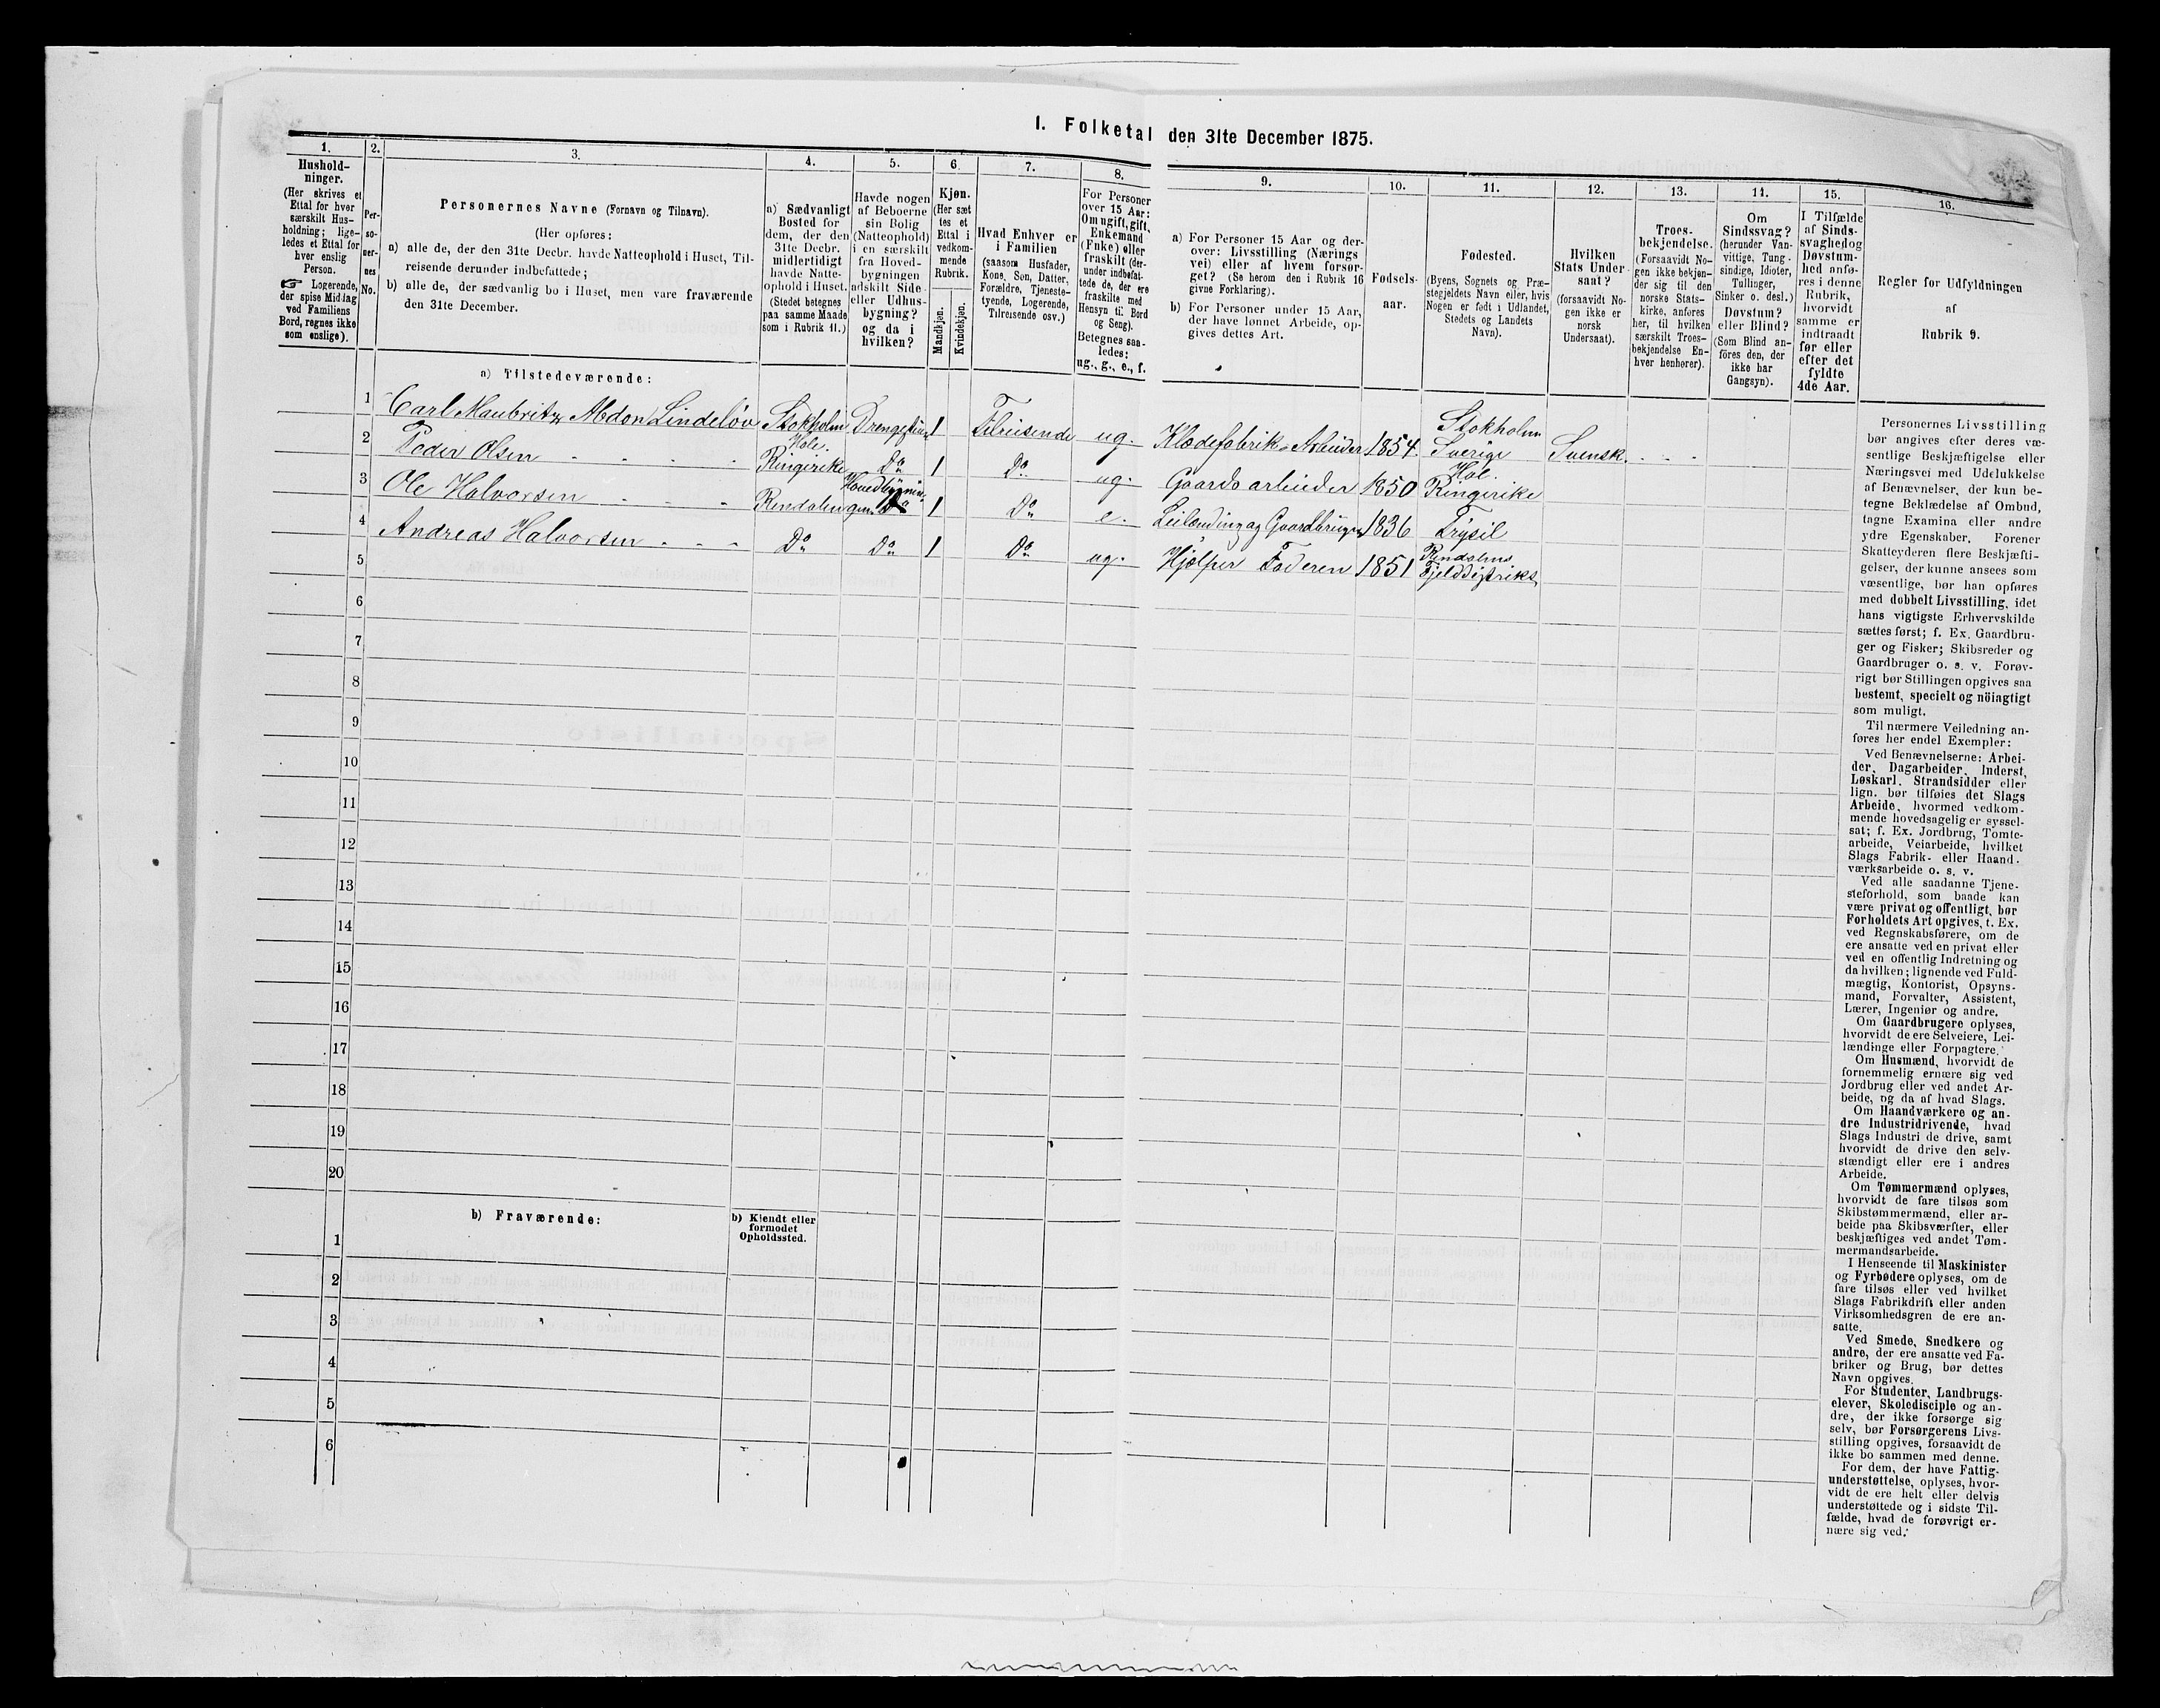 I. Folketal den 31te December 1875.
1.
Hushold-
ninger.
(Her skrives et
Ettal for hver
særskilt Hus-
holdning; lige-
ledes et Ettal for
hver enslig
Person.
☞ Logerende,
der spise Middag
ved Familiens
Bord, regnes ikke
som enslige).
2.
Per-
so-
ner-
nes
No.
3.
Personernes Navne (Fornavn og Tilnavn).
(Her opføres:
a) alle de, der den 31te Decbr. havde Natteophold i Huset, Til-
reisende derunder indbefattede;
b) alle de, der sædvanlig bo i Huset, men vare fraværende
den 31te December.
4.
a) Sædvanligt
Bosted for
dem, der den
31te Decbr.
midlertidigt
havde Natte-
ophold i Huset.
(Stedet betegnes
paa samme Maade
som i Rubrik 11.)
5.
Havde nogen
af Beboerne
sin Bolig
(Natteophold)
i en særskilt
fra Hoved-
bygningen
adskilt Side-
eller Udhus-
bygning?
og da i
hvilken?
6.
Kjøn.
(Her sæt
tes et
Ettal i
vedkom-
mende
Rubrik.
Mandkjøn.
Kvindekjøn.
7.
Hvad Enhver er
i Familien
(saasom Husfader,
Kone, Søn, Datter,
Forældre, Tjeneste-
tyende, Logerende,
Tilreisende osv.)
8.
For Personer
over 15 Aar:
Om ugift, gift,
Enkemand
(Enke) eller
fraskilt (der-
under indbefat-
tede de, der ere
fraskilte med
Hensyn til Bord
og Seng).
Betegnes saa-
ledes:
ug., g., e., f.
9.
a) For Personer 15 Aar og der-
over: Livsstilling (Nærings
vei) eller af hvem forsør-
get? (Se herom den i Rubrik 16
givne Forklaring).
b) For Personer under 15 Aar,
der have lønnet Arbeide, op-
gives dettes Art.
10.
Fødsels-
aar.
11.
Fødested.
(Byens, Sognets og Præ-
stegjeldets Navn eller, hvis
Nogen er født i Udlandet,
Stedets og Landets
Navn).
12.
Hvilken
Stats Under-
saat?
(forsaavidt No-
gen ikke er
norsk
Undersaat).
13.
Troes-
bekjendelse.
(Forsaavidt No-
gen ikke bekjen-
der sig til den
norske Stats-
kirke, anføres
her, til hvilken
særskilt Troes-
bekjendelse En-
hver henhører).
14.
Om
Sindssvag?
(herunder Van-
vittige, Tung-
sindige, Idioter,
Tullinger,
Sinker o. desl.)
Døvstum?
eller Blind?
(Som Blind an-
føres den, der
ikke har
Gangsyn).
15.
I Tilfælde
af Sinds-
svaghed og
Døvstum-
hed anfø-
res i denne
Rubrik,
hvorvidt
samme er
indtraadt
før eller
efter det
fyldte
4de Aar.
16.
Regler for Udfyldningen
af
Rubrik 9.
a) Tilstedeværende:
1 Carl Maubritz Abdon Lindelöv Stokholm 1 Tilreisende ug. Klædefabrik-Arbeider 1854 Stokholm Sverige Svensk
2 Peder Olsen Hole. Ringirike Do 1 Do ug. Gaardsarbeider 1850 Hol. Ringirike
3 Ole Halvorsen Rendalen Hovedbygnin-gen 1 Do e. Leilænding og Gaardbruger 1836 Trysil
4 Andreas Halvorsen Do Do 1 Do ug. Hjælper Faderen 1851 Rendalens Fjelddistrikt
5
6
7
8
9
10
11
12
13
14
15
16
17
18
19
20
b) Fraværende:
b) Kjendt eller
formodet
Opholdssted.
1
2
3
4
5
6
Personernes Livsstilling
bør angives efter deres væ-
sentlige Beskjæftigelse eller
Næringsvei med Udelukkelse
af Benævnelser, der kun be-
tegne Beklædelse af Ombud,
tagne Examina eller andre
ydre Egenskaber. Forener
Skatteyderen flere Beskjæfti-
gelser, der kunne ansees som
væsentlige, bør han opføres
med dobbelt Livsstilling, idet
hans vigtigste Erhvervskilde
sættes først; f. Ex. Gaardbru-
ger og Fisker; Skibsreder og
Gaardbruger o. s. v. Forøv-
rigt bør Stillingen opgives saa
bestemt, specielt og nöiagtigt
som muligt.
Til nærmere Veiledning an-
føres her endel Exempler:
Ved Benævnelserne: Arbei-
der, Dagarbeider, Inderst,
Løskarl, Strandsidder eller
lign. bør tilføies det Slags
Arbeide, hvormed vedkom-
mende hovedsagelig er syssel-
sat; f. Ex. Jordbrug, Tomte-
arbeide, Veiarbeide, hvilket
Slags Fabrik- eller Haand-
værksarbeide o. s. v.
Ved alle saadanne Tjene-
steforhold, som baade kan
være privat og offentligt, bør
Forholdets Art opgives, t. Ex.
ved Regnskabsførere, om de
ere ansatte ved en privat eller
ved en offentlig Indretning og
da hvilken; lignende ved Fuld-
mægtig, Kontorist, Opsyns-
mand, Forvalter, Assistent,
Lærer, Ingeniør og andre.
Om Gaardbrugere oplyses,
hvorvidt de ere Selveiere, Lei-
lændinge eller Forpagtere.
Om Husmænd, hvorvidt de
fornemmelig ernære sig ved
Jordbrug eller ved andet Ar-
beide, og da af hvad Slags.
Om Haandværkere og an-
dre Industridrivende, hvad
Slags Industri de drive, samt
hvorvidt de drive den selv-
stændigt eller ere i andres
Arbeide.
Om Tømmermænd oplyses,
hvorvidt de fare tilsøs som
Skibstømmermænd, eller ar-
beide paa Skibsværfter, eller
beskjæftiges ved andet Tøm-
mermandsarbeide.
I Henseende til Maskinister
og Fyrbødere oplyses, om de
fare tilsøs eller ved hvilket
Slags Fabrikdrift eller anden
Virksomhedsgren de ere an-
satte.
Ved Smede, Snedkere og
andre, der ere ansatte ved Fa-
briker og Brug, bør dettes
Navn opgives.
For Studenter, Landbrugs-
elever, Skoledisciple og an-
dre, der ikke forsørge sig
selv, bør Forsørgerens Livs-
stilling opgives, forsaavidt de
ikke bo sammen med denne.
For dem, der have Fattig-
understøttelse, oplyses, hvor-
vidt de ere helt eller delvis
understøttede og i sidste Til-
fælde, hvad de forøvrigt er-
nære sig ved.